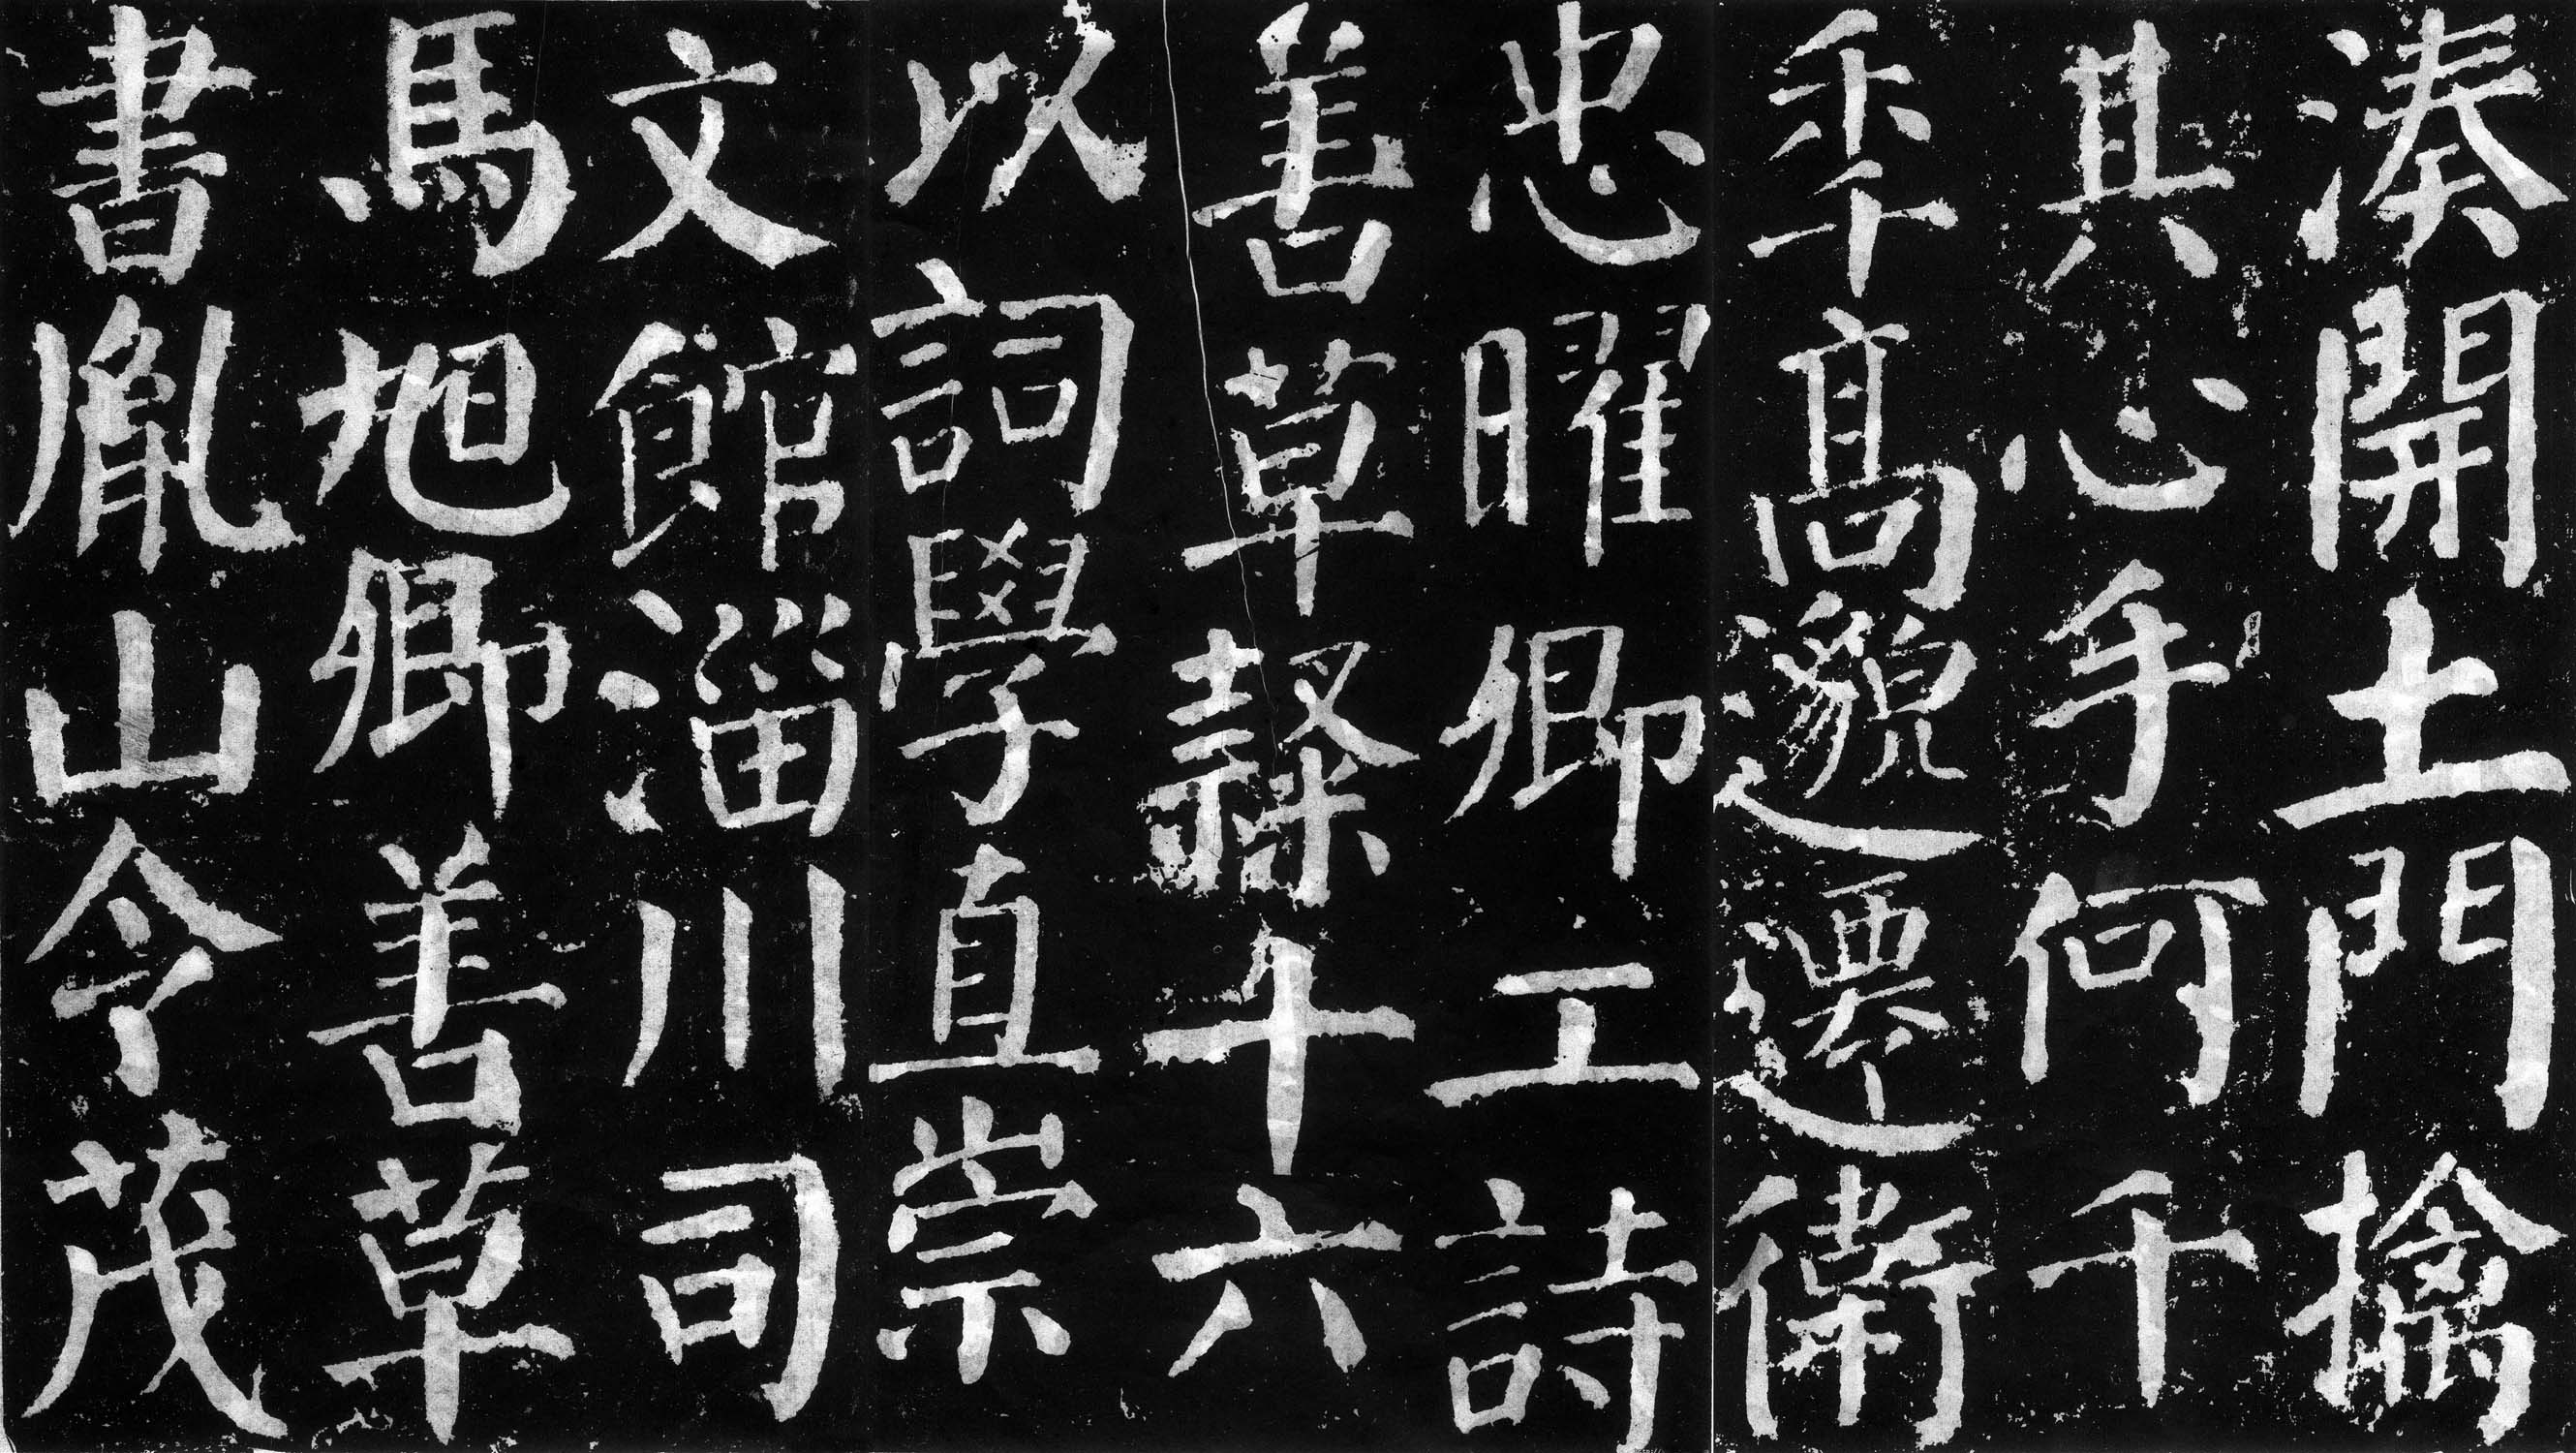 湊開土門擒
其心手何千
秊髙邈遷衛
忠曜卿工詩
善草隸十六
以詞學直崇
文館淄川司
馬旭卿善草
書胤山令茂